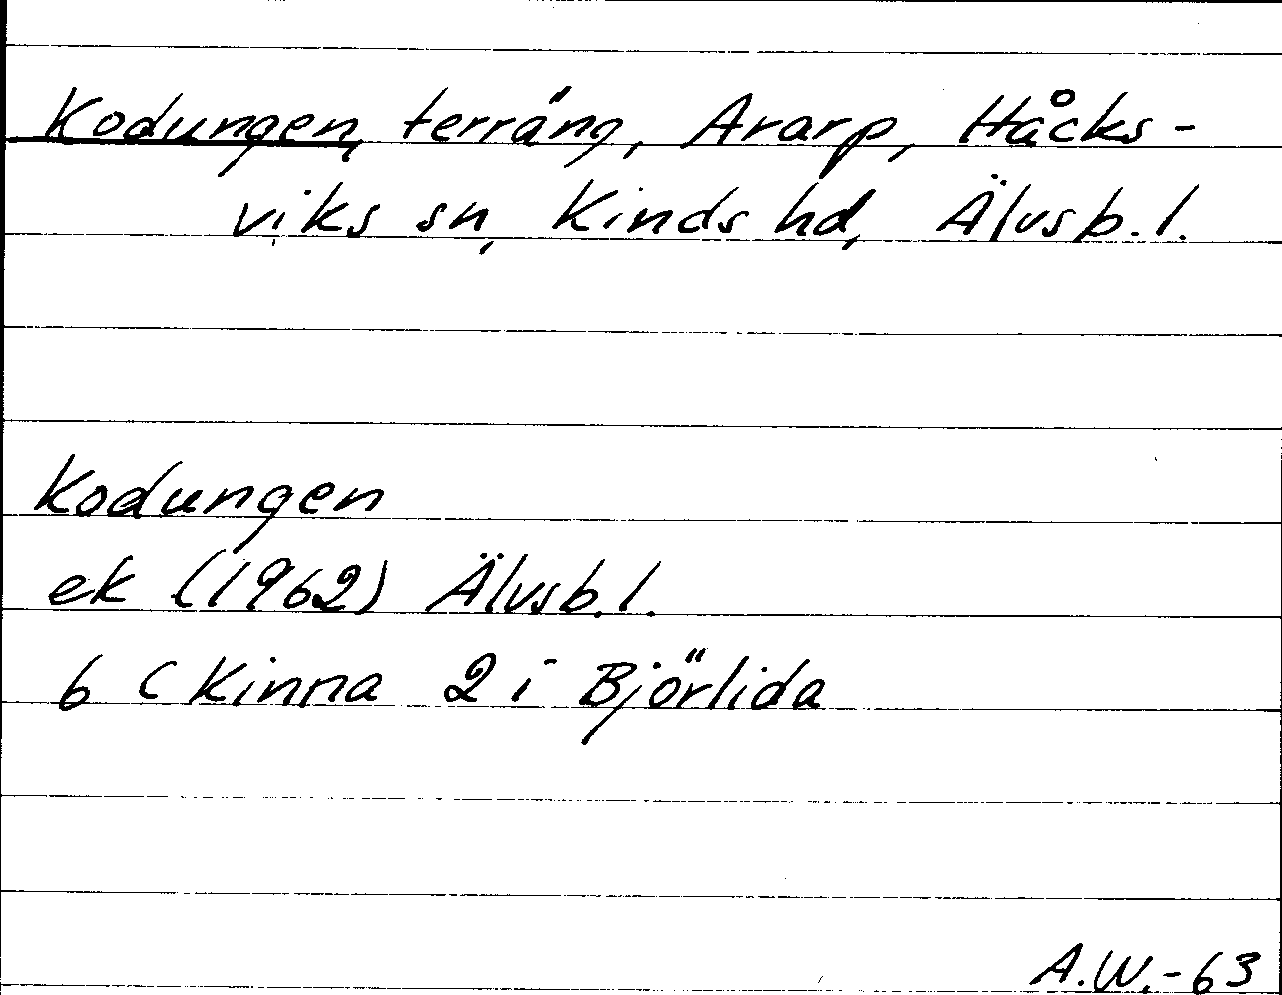 Kodungen, terräng, Ararp, Håcks-
viks sn, Kinds hd, Älvsb. l.
Kodungen
ek (1962) Älvsb. l.
6 C Kinna 2 i Björlida
A.W.-63